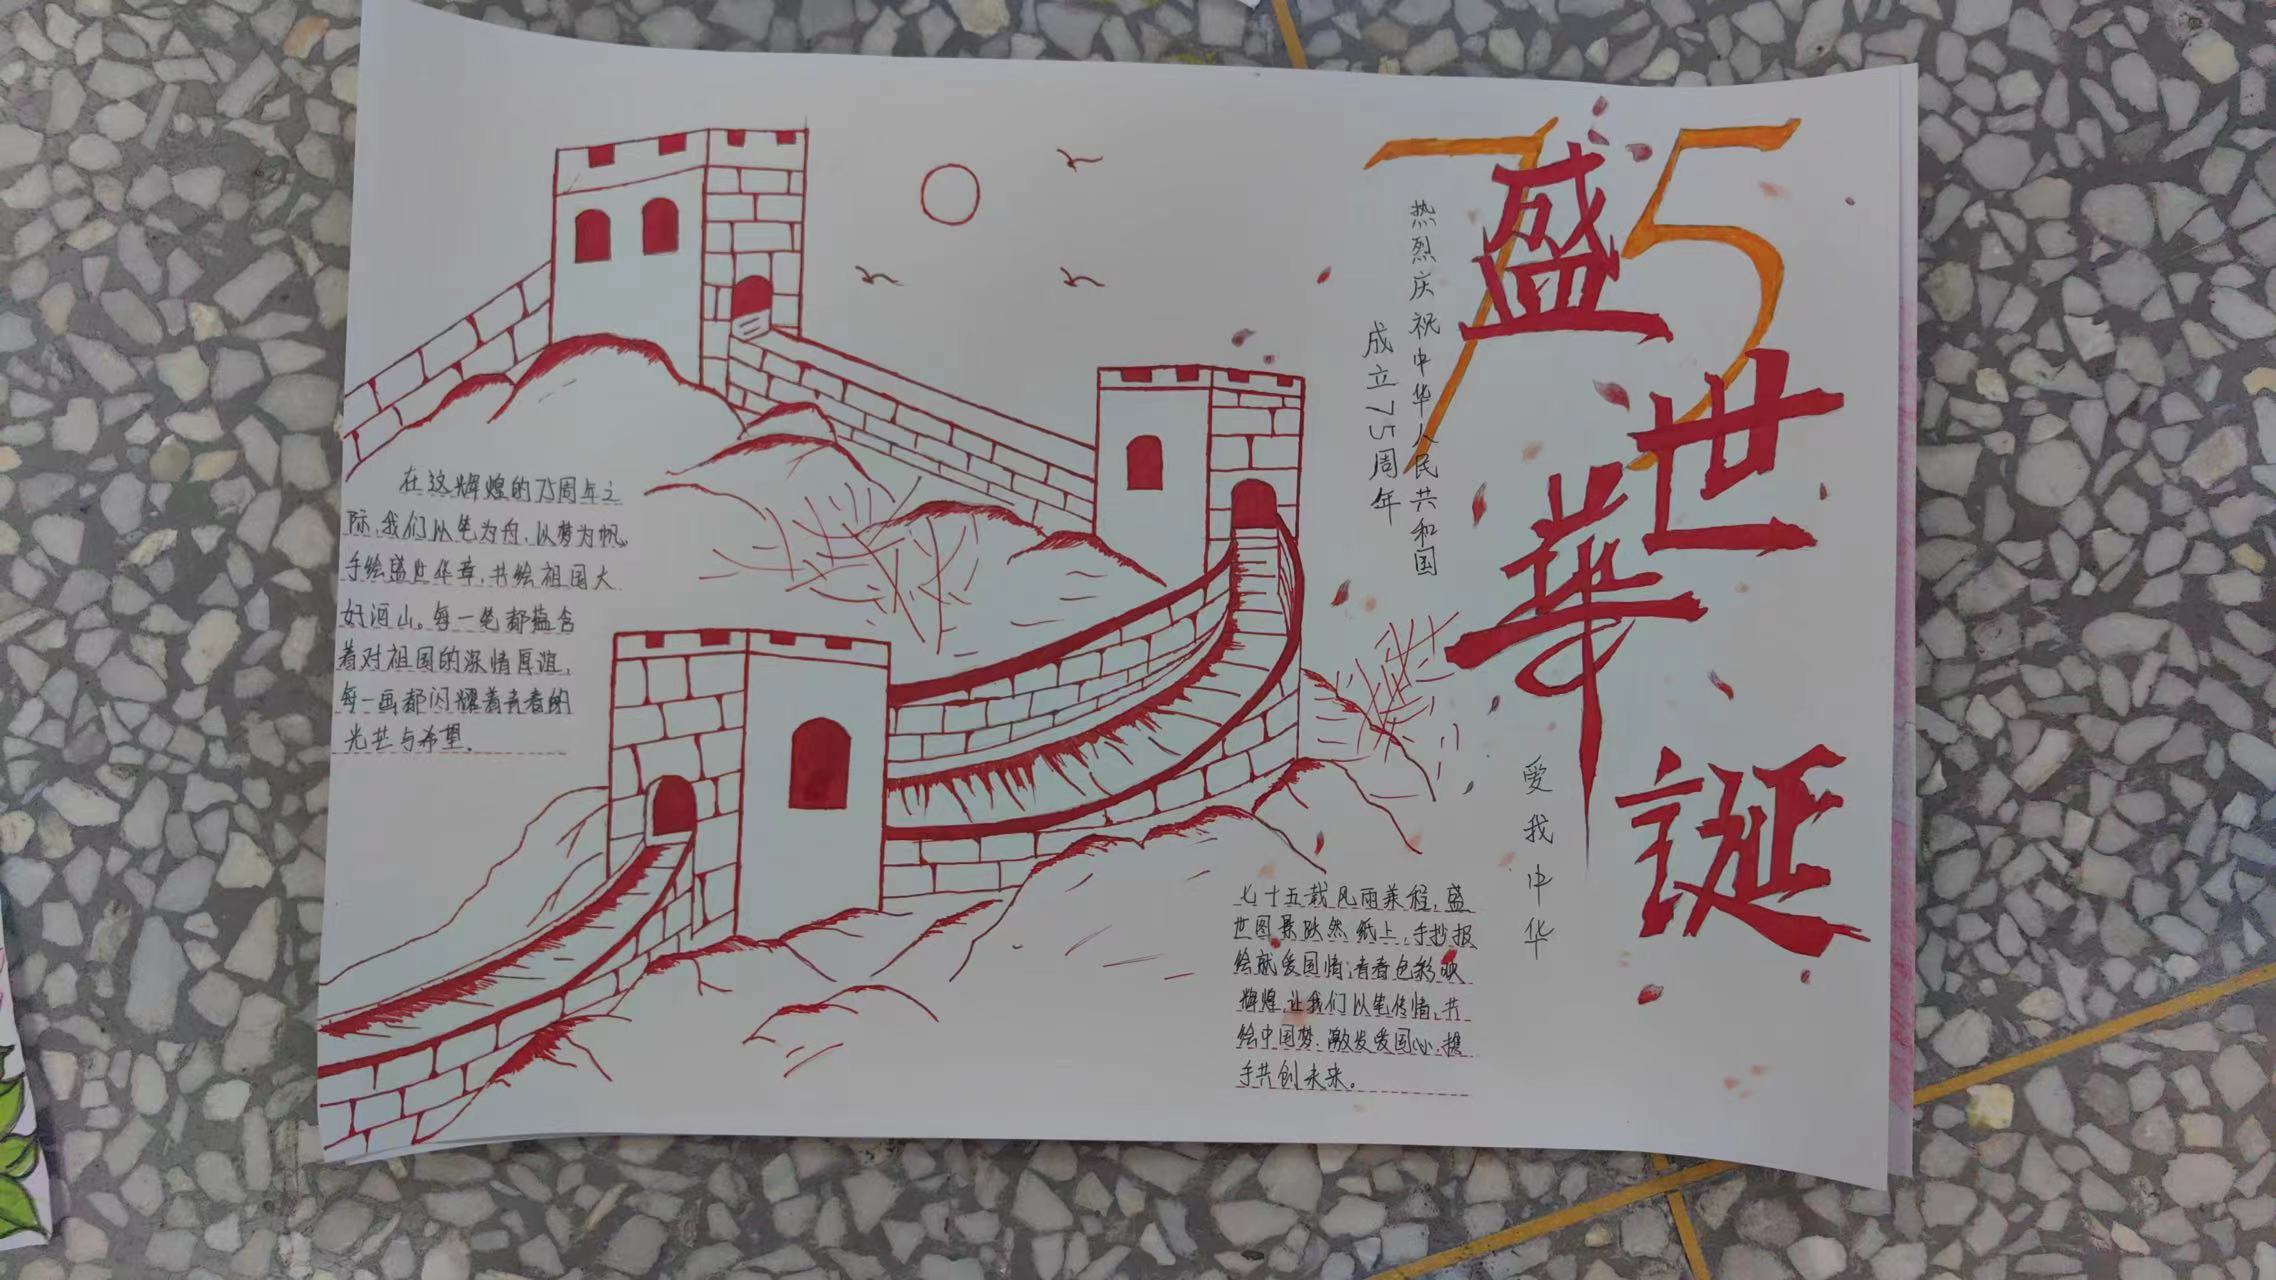 75
盛世華誕
热烈庆祝中华人民共和国
成立75周年
爱我中华
在这辉煌的75周年之
际,我们以笔为舟,以梦为帆,
手绘盛世华章,书绘祖国大
好河山。每一笔都蕴含
着对祖国的深情厚谊,
每一画都闪耀着青春的
光芒与希望.
七十五载风雨兼程,盛
世图景跃然纸上,手抄报
绘就爱国情;青春色彩映
辉煌,让我们以笔传情,共
绘中国梦,激发爱国心,携
手共创未来。